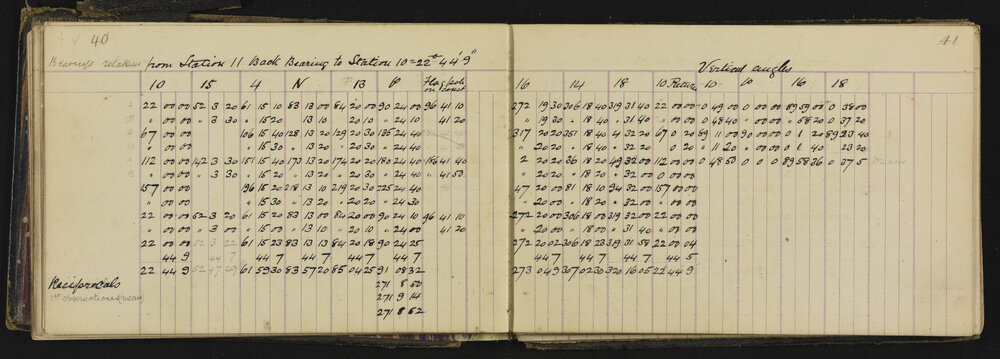 40
41
Bearings retaken from Station 11 Back Bearing to Station 10 = 22° 44' 9"
Vertical angles
10 15 4 N 13 P Flag on pole const 16 14 18 10 Return 10 16 18
A 22 00 00 52 3 20 61 15 10 83 13 00 84 20 00 90 24 00 96 41 10 272 19 30 306 18 40 319 31 40 22 0 00 0 49 00 0 00 00 89 59 00 0 38 00
B " 00 00 " 3 30 " 15 20 13 10 20 10 " 24 10 41 20 " 19 30 " 18 40 " 31 40 " 0 00 0 48 40 " 00 00 " 58 20 0 37 20
A 67 00 00 106 15 40 128 13 20 129 20 30 135 24 40 317 20 20 351 18 40 4 32 20 67 0 20 89 11 00 90 00 00 0 1 20 89 23 40
B " 00 00 " 15 30 " 13 20 " 20 30 " 24 40 " 20 20 " 18 40 " 32 20 0 20 " 11 20 " 00 00 0 1 40 23 20
A 112 00 00 142 3 30 151 15 40 173 13 20 174 20 20 180 24 40 186 41 40 2 20 20 36 18 20 49 32 00 112 00 00 0 48 50 0 0 0 89 58 36 0 37 5 Means
B " 00 00 " 3 30 " 15 20 " 13 20 " 20 30 " 24 40 " 41 50 " 20 20 " 18 20 " 32 00 0 00 00
157 00 00 196 15 20 218 13 10 219 20 30 225 24 40 47 20 00 81 18 10 94 32 00 157 00 00
" 00 00 " 15 30 " 13 20 " 20 20 " 24 30 " 20 00 " 18 20 " 32 00 " 00 00
22 00 00 52 3 20 61 15 20 83 13 00 84 20 00 90 24 10 96 41 10 272 20 00 306 18 00 319 32 00 22 00 00
" 00 00 " 3 00 " 15 00 " 13 10 " 20 10 " 24 00 41 20 " 20 00 " 18 00 " 31 40 " 00 00
22 00 00 52 3 22 61 15 23 83 13 13 84 20 18 90 24 25 272 20 02 306 18 23 319 31 58 22 00 04
44 9 44 7 44 7 44 7 44 7 44 7 44 7 44 7 44 7 44 5
22 44 9 52 47 29 61 59 30 83 57 20 85 04 25 91 08 32 273 04 9 307 02 30 320 16 05 22 44 9
Reciprocals 271 8 50
1st observations (mean) 271 9 14
271 8 52